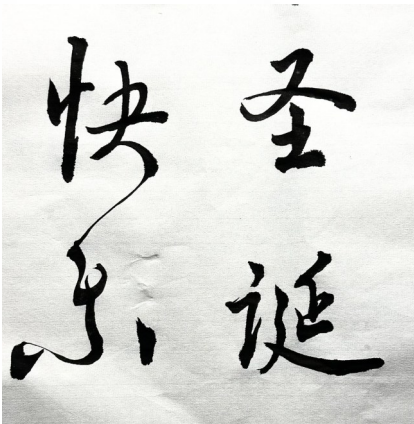 圣诞
快乐